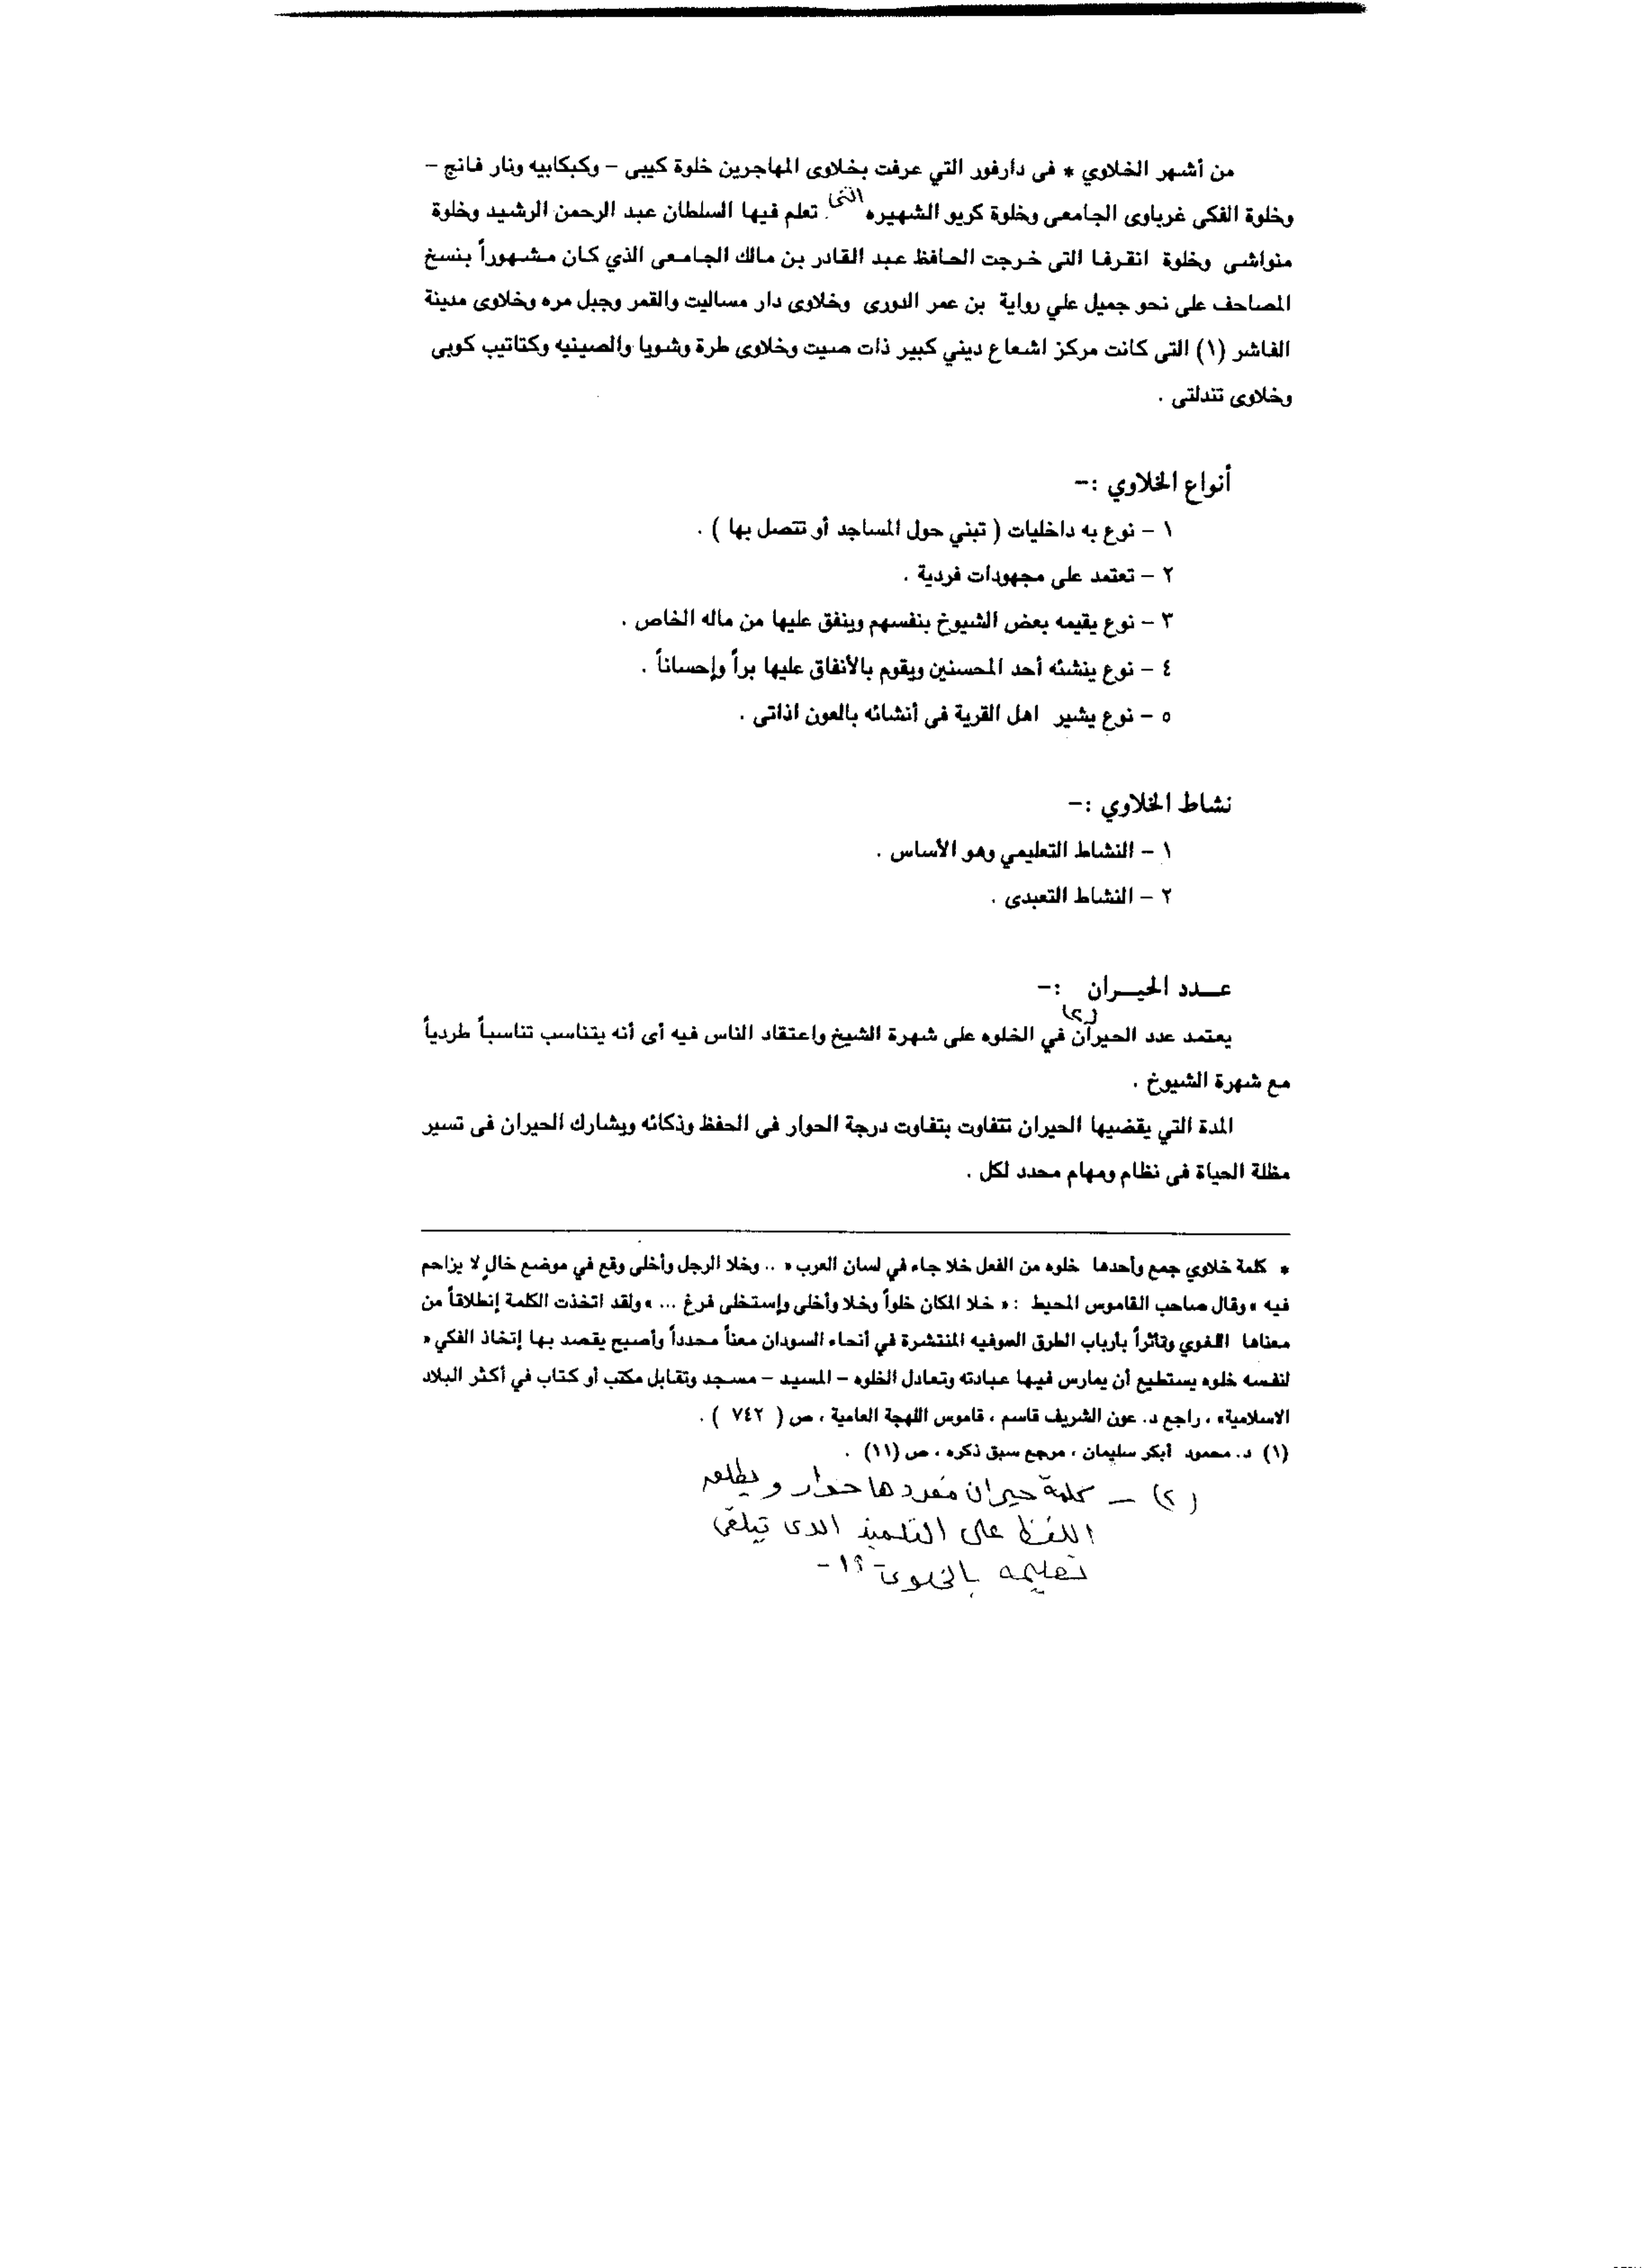 من أشهر الخلاوي * فى دارفور التي عرفت بخلاوى المهاجرين خلوة كيبى – وكبكابيه ونار فانج –
وخلوة الفكى غرباوى الجامعى وخلوة كريو الشهيره التى تعلم فيها السلطان عبد الرحمن الرشيد وخلوة
منواشى وخلوة انقرفا التى خرجت الحافظ عبد القادر بن مالك الجامعى الذي كان مشهوراً بنسخ
المصاحف على نحو جميل علي رواية بن عمر الدورى وخلاوى دار مساليت والقمر وجبل مره وخلاوى مدينة
الفاشر (١) التى كانت مركز اشعاع ديني كبير ذات صيت وخلاوى طرة وشويا والصينيه وكتاتيب كوبى
وخلاوى تندلتى .
أنواع الخلاوي :–
١ – نوع به داخليات ( تبني حول المساجد أو تتصل بها ) .
٢ – تعتمد على مجهودات فردية .
٣ – نوع يقيمه بعض الشيوخ بنفسهم وينفق عليها من ماله الخاص .
٤ – نوع ينشئه أحد المحسنين ويقوم بالأنفاق عليها براً وإحساناً .
٥ – نوع يشير اهل القرية فى أنشائه بالعون اذاتى .
نشاط الخلاوي :–
١ – النشاط التعليمي وهو الأساس .
٢ – النشاط التعبدى .
عـــدد الحيـــران :–
يعتمد عدد الحيران (٢) في الخلوه على شهرة الشيخ واعتقاد الناس فيه أى أنه يتناسب تناسباً طردياً
مع شهرة الشيوخ .
المدة التي يقضيها الحيران تتفاوت بتفاوت درجة الحوار فى الحفظ وذكائه ويشارك الحيران فى تسير
مظلة الحياة فى نظام ومهام محدد لكل .
* كلمة خلاوي جمع وأحدها خلوه من الفعل خلا جاء في لسان العرب « .. وخلا الرجل وأخلى وقع في موضع خالٍ لا يزاحم
فيه » وقال صاحب القاموس المحيط : « خلا المكان خلواً وخلا وأخلى وإستخلى فرغ ... » ولقد اتخذت الكلمة إنطلاقاً من
معناها اللغوي وتأثراً بأرباب الطرق الصوفيه المنتشرة في أنحاء السودان معناً محدداً وأصبح يقصد بها إتخاذ الفكي «
لنفسه خلوه يستطيع أن يمارس فيها عبادته وتعادل الخلوه – المسيد – مسجد وتقابل مكتب أو كتاب في أكثر البلاد
الاسلامية» ، راجع د. عون الشريف قاسم ، قاموس اللهجة العامية ، ص ( ٧٤٢ ) .
(١) د. محمود أبكر سليمان ، مرجع سبق ذكره ، ص (١١) .
(٢) – كلمة حيران مفردها حوار ويطلق
اللفظ على التلميذ الذى يتلقى
تعليمه بالخلوة